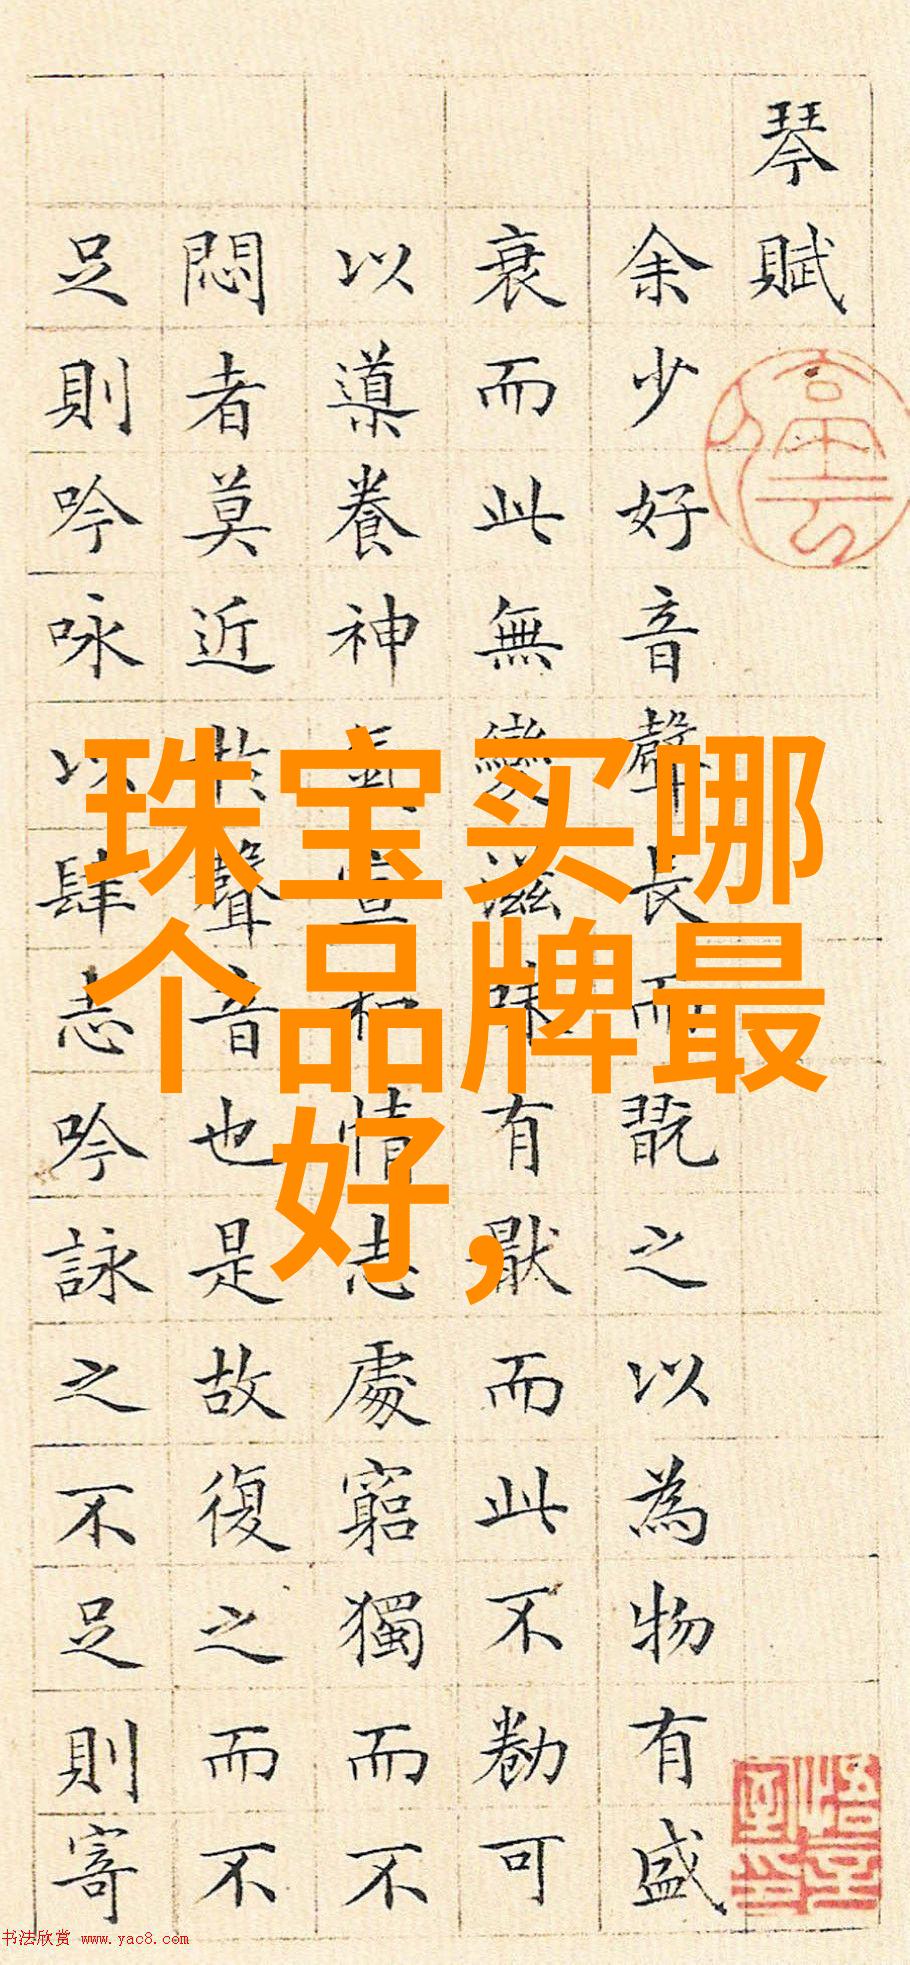 琴賦
余少好音聲長而翫之以為物有盛
衰而此無變滋味有厭而此不勌可
以導養神氣宣和情志處窮獨而不
悶者莫近於聲音也是故復之而不
足則吟咏以肆志吟詠之不足則寄
珠宝买哪
个品牌最
好,
书法欣赏 www.yac8.com